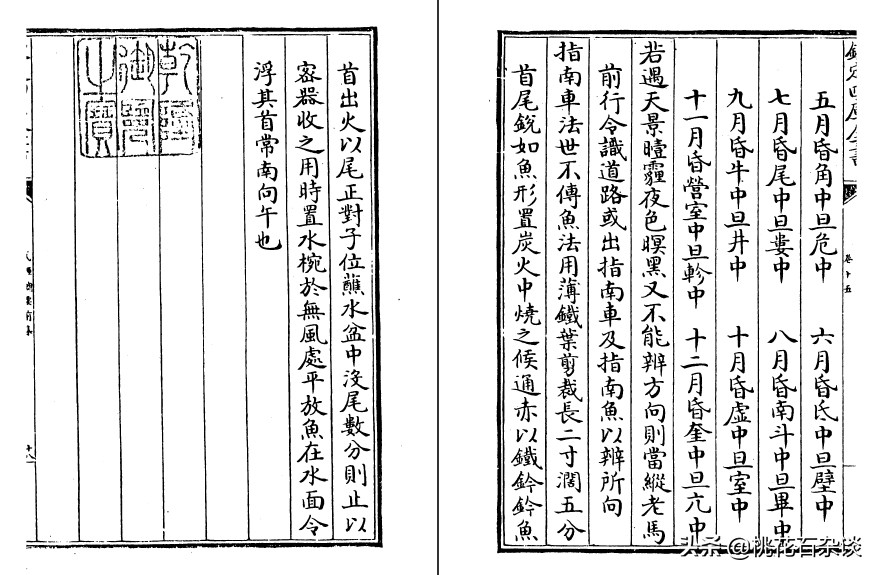 欽定四庫全書
卷十五
五月昏角中旦危中 六月昏氐中旦壁中
七月昏尾中旦婁中 八月昏南斗中旦畢中
九月昏牛中旦井中 十月昏虛中旦室中
十一月昏營室中旦軫中 十二月昏奎中旦亢中
若遇天景曀霾夜色暝黑又不能辨方向則當縱老馬
前行令識道路或出指南車及指南魚以辨所向
指南車法世不傳魚法用薄鐵葉剪裁長二寸濶五分
首尾銳如魚形置炭火中燒之候通赤以鐵鈐鈐魚
首出火以尾正對子位蘸水盆中沒尾數分則止以
密器收之用時置水椀於無風處平放魚在水面令
浮其首常南向午也
乾隆
御覽
之寶
十八
头条 @桃花石杂谈